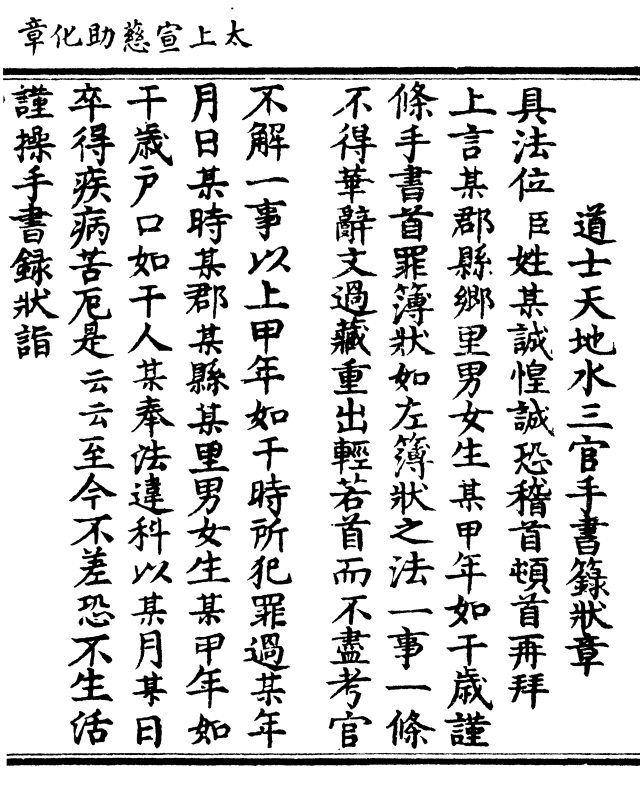 太上宣慈助化章
道士天地水三官手書籙狀章
具法位臣姓某誠惶誠恐稽首頓首再拜
上言某郡縣鄉里男女生某甲年如干歲謹
條手書首罪簿狀如左簿狀之法一事一條
不得華辭文過藏重出輕若首而不盡考官
不解一事以上甲年如干時所犯罪過某年
月日某時某郡某縣某里男女生某甲年如
干歲戶口如干人某奉法違科以某月某日
卒得疾病苦厄是云云至今不差恐不生活
謹操手書録狀詣